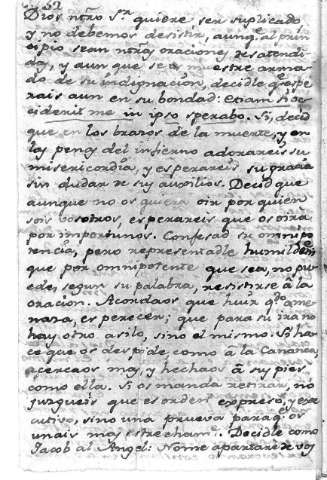 Dios ntro Sr. quiere ser suplicado
y no debemos desistir, aunq. al prin
cipio sean ntras oraciones desatendi
das, y aun que se os muestre arma
do de su indignacion, decidle q. espe
rais aun en su bondad: Etiam si oc
ciderit me in ipso sperabo. Si, decid
que en los brazos de la muerte, y en
las penas del infierno adorareis su
misericordia, y esperareis su gracia
sin dudar de sus auxilios. Decid que
aunque no os quiera oir por quien
sois vosotros, esperareis que os oirà
por importunos. Confesad su omnipo
tencia, pero representadle humildem.
que por omnipotente que sea, no pue
de, segun su palabra, resistirse à la
oracion. Acordaos que huir qdo ame
naza, es perecer; que para su ira no
hay otro asilo, sino el mismo. Si ha
ce que os despide, como à la Cananea,
acercaos mas, y hechaos à sus pies
como ella. Si os manda retirar, no
juzgueis que es orden expreso, y eje
cutivo, sino una prueva para q. os
unais mas estrecham.. Decidle como
Jacob al Angel: No me apartarè de vos